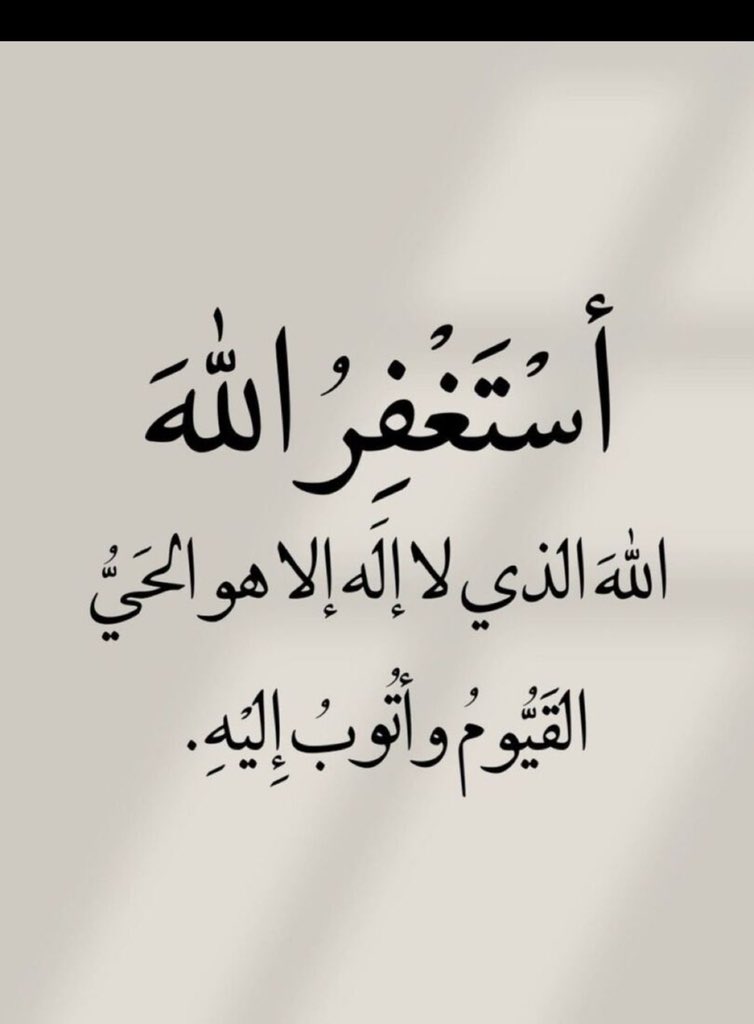 أسْتَغْفِرُ اللهَ
اللهَ الذي لا إلَه إلا هو الحَيُّ
القَيُّومُ وأتُوبُ إِليْهِ.